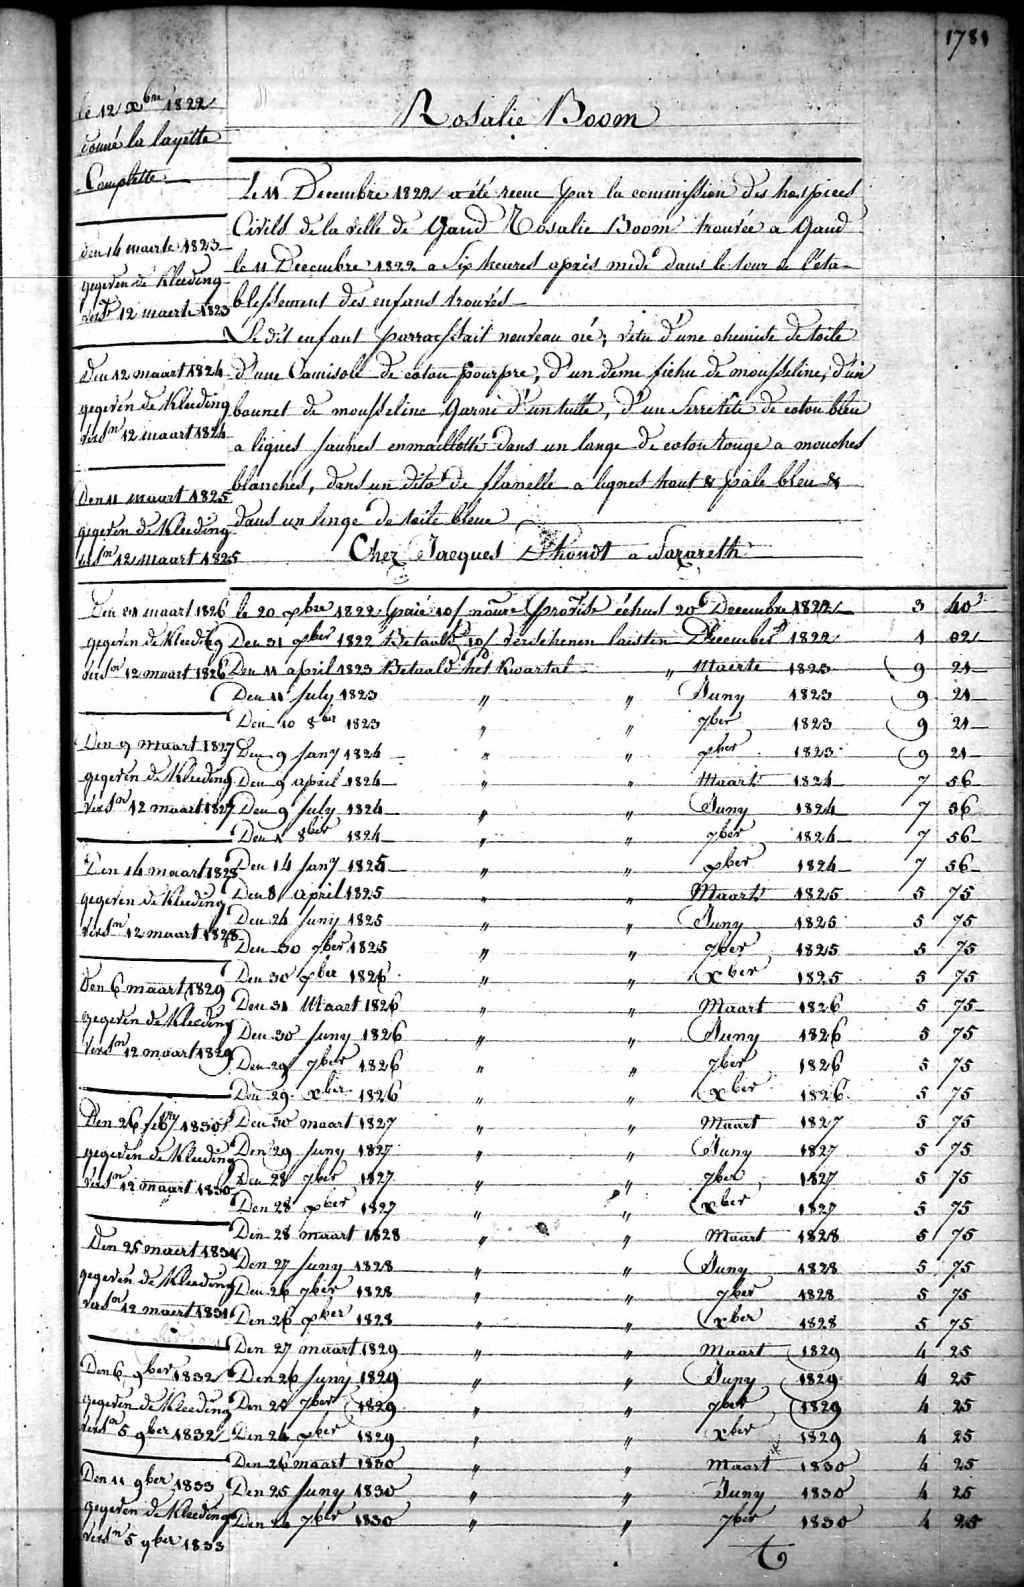 1781
Rosalie Boom
le 12 xbre 1822
donné la layette
Complette
den 14 maerte 1823
gegeven de Kleeding
versn 12 maerte 1823
Den 12 maart 1824
gegeven de Kleeding
versn 12 maart 1824
Den 11 maart 1825
gegeven de Kleeding
versn 12 maart 1825
Den 21 maart 1826
gegeven de Kleeding
versn 12 maart 1826
Den 9 maart 1827
gegeven de Kleeding
versn 12 maart 1827
Den 14 maart 1828
gegeven de Kleeding
versn 12 maart 1828
Den 6 maart 1829
gegeven de Kleeding
versn 12 maart 1829
Den 26 feby 1830
gegeven de Kleeding
versn 12 maart 1830
Den 25 maert 1831
gegeven de Kleeding
versn 12 maert 1831
Den 6 9ber 1832
gegeven de Kleeding
versn 5 9ber 1832
Den 11 9ber 1833
gegeven de Kleeding
versn 5 9ber 1833
Le 11 Decembre 1822 a été recue par la commission des hospices
Civils de la ville de Gand Rosalie Boom trouvée a Gand
le 11 Decembre 1822 a Six heures après midi dans le tour de l'éta-
blissement des enfans trouvés
Le dit enfant parraissait nouveau né, vetu d'une chemise de toile
d'une Camisole de coton pourpre, d'un deme fichu de mousseline, d'un
bonnet de mousseline Garni d'un tulle, d'un Serretête de coton bleu
a lignes jaunes enmaillotté dans un lange de coton rouge a mouches
blanches, dans un dito de flanelle a lignes haut & pâle bleu &
dans un linge de toile bleue
Chez Jacques D'hondt a Nazareth
le 20 xbre 1822 payé 10/ échus 20 Decembre 1822 3 40
Den 31 xber 1822 Betaald 10/ verschenen laisten December 1822 1 02
Den 11 april 1823 Betaald het Kwartal " Maerte 1823 9 21
Den 11 July 1823 " " Juny 1823 9 21
Den 10 8ber 1823 " " 7ber 1823 9 21
Den 9 Jany 1824 " " xber 1823 9 21
Den 9 april 1824 " " Maart 1824 7 56
Den 9 July 1824 " " Juny 1824 7 56
Den 1 8ber 1824 " " 7ber 1824 7 56
Den 14 Jany 1825 " " xber 1824 7 56
Den 8 april 1825 " " Maart 1825 5 75
Den 24 Juny 1825 " " Juny 1825 5 75
Den 30 7ber 1825 " " 7ber 1825 5 75
Den 30 xber 1826 " " xber 1825 5 75
Den 31 Maart 1826 " " Maart 1826 5 75
Den 30 Juny 1826 " " Juny 1826 5 75
Den 29 7ber 1826 " " 7ber 1826 5 75
Den 29 xber 1826 " " xber 1826 5 75
Den 30 maart 1827 " " Maart 1827 5 75
Den 29 Juny 1827 " " Juny 1827 5 75
Den 28 7ber 1827 " " 7ber 1827 5 75
Den 28 xber 1827 " " xber 1827 5 75
Den 28 maart 1828 " " Maart 1828 5 75
Den 27 Juny 1828 " " Juny 1828 5 75
Den 26 7ber 1828 " " 7ber 1828 5 75
Den 26 xber 1828 " " xber 1828 5 75
Den 27 maart 1829 " " Maart 1829 4 25
Den 26 Juny 1829 " " Juny 1829 4 25
Den 25 7ber 1829 " " 7ber 1829 4 25
Den 24 xber 1829 " " xber 1829 4 25
Den 26 maart 1830 " " Maart 1830 4 25
Den 25 Juny 1830 " " Juny 1830 4 25
Den 7ber 1830 " " 7ber 1830 4 25